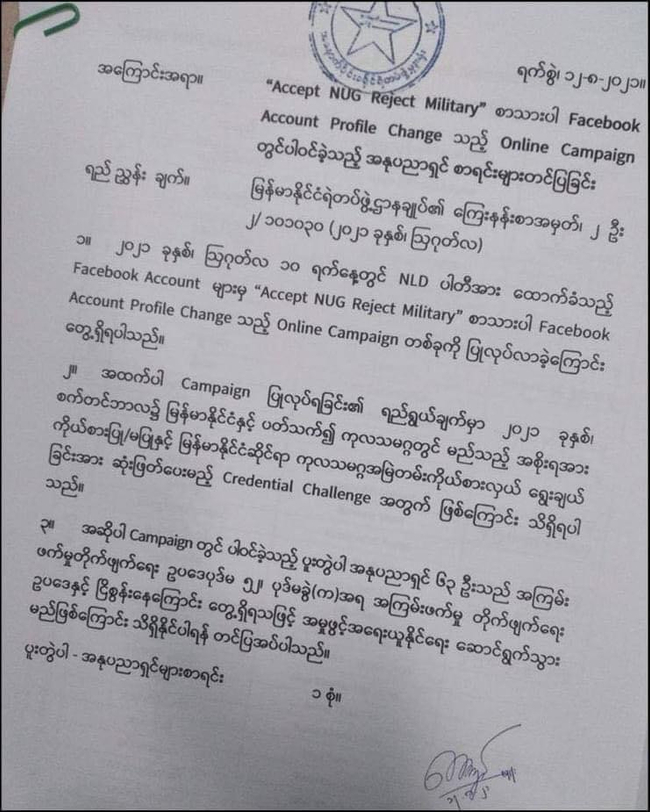 ရက်စွဲ၊ ၁၂-၈-၂၀၂၁။
အကြောင်းအရာ။ “Accept NUG Reject Military” စာသားပါ Facebook
Account Profile Change သည့် Online Campaign
တွင်ပါဝင်ခဲ့သည့် အနုပညာရှင် စာရင်းများတင်ပြခြင်း
ရည် ညွှန်း ချက်။ မြန်မာနိုင်ငံရဲတပ်ဖွဲ့ဌာနချုပ်၏ ကြေးနန်းစာအမှတ်၊ ၂ ဦး
၂/ ၁၀၁၀၃၀ (၂၀၂၁ ခုနှစ်၊ ဩဂုတ်လ)
၁။ ၂၀၂၁ ခုနှစ်၊ ဩဂုတ်လ ၁၀ ရက်နေ့တွင် NLD ပါတီအား ထောက်ခံသည့်
Facebook Account များမှ “Accept NUG Reject Military” စာသားပါ Facebook
Account Profile Change သည့် Online Campaign တစ်ခုကို ပြုလုပ်လာခဲ့ကြောင်း
တွေ့ရှိရပါသည်။
၂။ အထက်ပါ Campaign ပြုလုပ်ရခြင်း၏ ရည်ရွယ်ချက်မှာ ၂၀၂၁ ခုနှစ်၊
စက်တင်ဘာလ၌ မြန်မာနိုင်ငံနှင့် ပတ်သက်၍ ကုလသမဂ္ဂတွင် မည်သည့် အစိုးရအား
ကိုယ်စားပြု/မပြုနှင့် မြန်မာနိုင်ငံဆိုင်ရာ ကုလသမဂ္ဂအမြဲတမ်းကိုယ်စားလှယ် ရွေးချယ်
ခြင်းအား ဆုံးဖြတ်ပေးမည့် Credential Challenge အတွက် ဖြစ်ကြောင်း သိရှိရပါ
သည်။
၃။ အဆိုပါ Campaign တွင် ပါဝင်ခဲ့သည့် ပူးတွဲပါ အနုပညာရှင် ၆၃ ဦးသည် အကြမ်း
ဖက်မှုတိုက်ဖျက်ရေး ဥပဒေပုဒ်မ ၅၂၊ ပုဒ်မခွဲ(က)အရ အကြမ်းဖက်မှု တိုက်ဖျက်ရေး
ဥပဒေနှင့် ငြိစွန်းနေကြောင်း တွေ့ရှိရသဖြင့် အမှုဖွင့်အရေးယူနိုင်ရေး ဆောင်ရွက်သွား
မည်ဖြစ်ကြောင်း သိရှိနိုင်ပါရန် တင်ပြအပ်ပါသည်။
ပူးတွဲပါ - အနုပညာရှင်များစာရင်း ၁ စုံ။